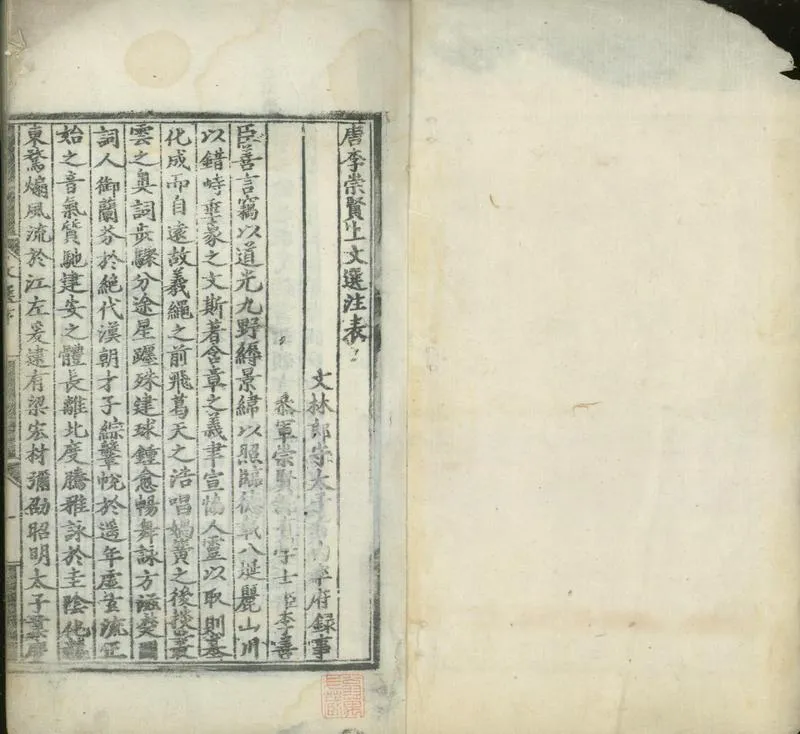 唐李崇賢上文選注表
文林郎守太子右内率府録事
叅軍崇賢館直學士臣李善
臣善言竊以道光九野縟景緯以照臨德載八埏麗山川
以錯峙垂象之文斯著含章之義聿宣恊人靈以取則基
化成而自遠故羲繩之前飛葛天之浩唱媧簧之後掞叢
雲之奥詞步驟分途星躔殊建球鍾愈暢舞詠方滋楚國
詞人御蘭芬於絶代漢朝才子綜鞶帨於遥年虚玄流正
始之音氣質馳建安之體長離北度騰雅詠於圭陰化龍
東騖煽風流於江左爰逮有梁宏材彌劭昭明太子業膺